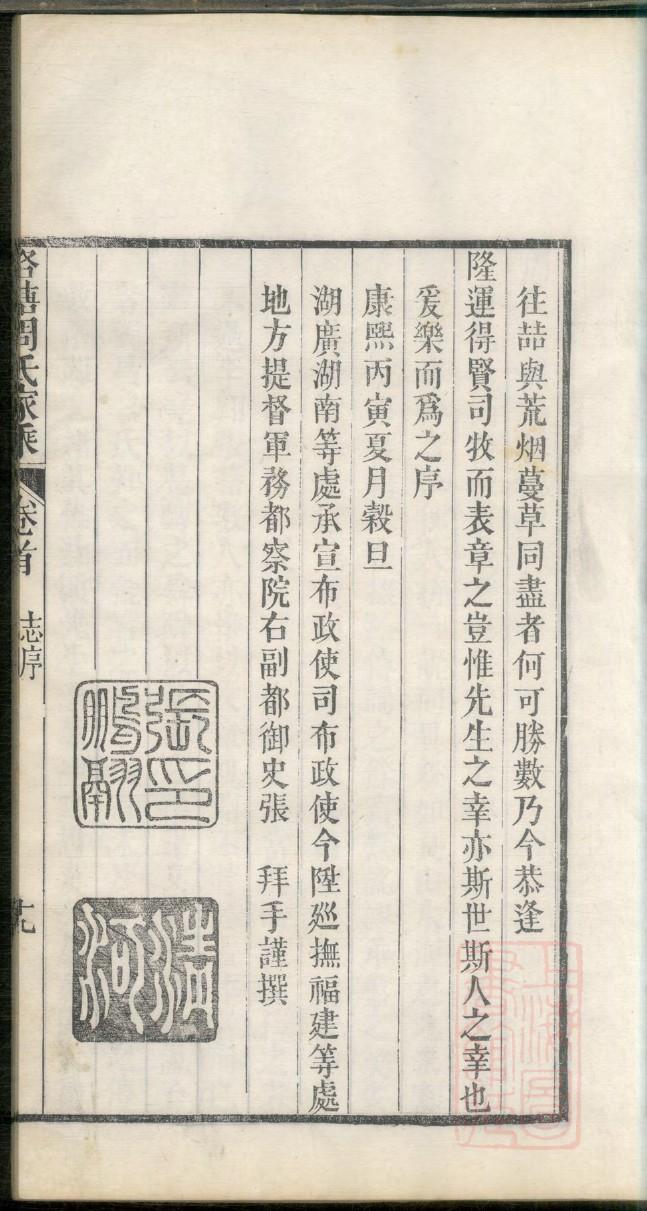 往喆與荒烟蔓草同盡者何可勝數乃今恭逢
隆運得賢司牧而表章之豈惟先生之幸亦斯世斯人之幸也
爰樂而爲之序
康熙丙寅夏月穀旦
湖廣湖南等處承宣布政使司布政使今陞廵撫福建等處
地方提督軍務都察院右副都御史張　拜手謹撰
張印
鵬翮
清河
周氏家乘
卷首
志序
十九